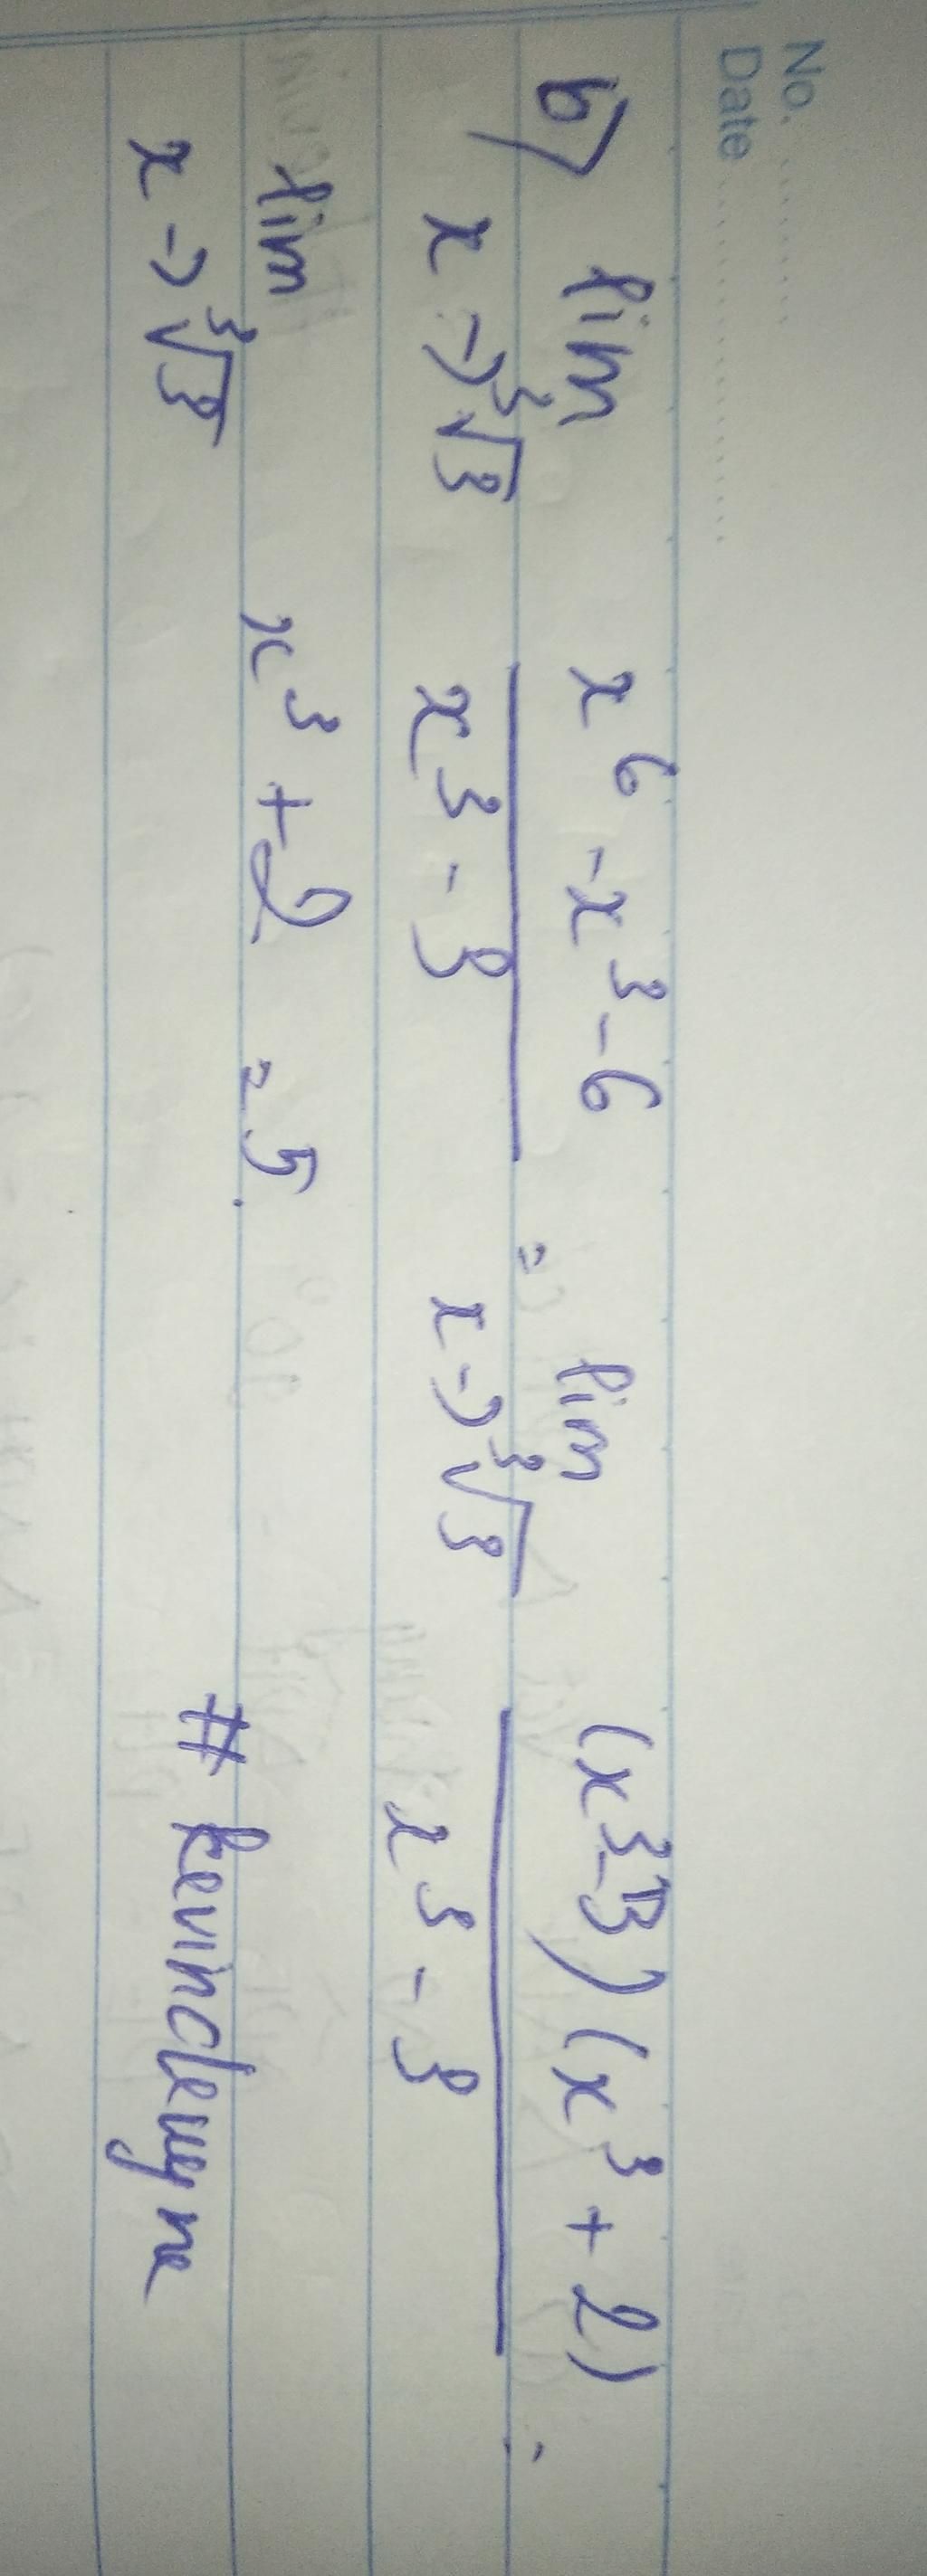 No. ..........
Date ....................
b) lim x→∛3 (x⁶ - x³ - 6)/(x³ - 3) = lim x→∛3 ((x³-3)(x³ + 2))/(x³ - 3) =
lim x→∛3 x³ + 2 = 5.
# kevincleyne